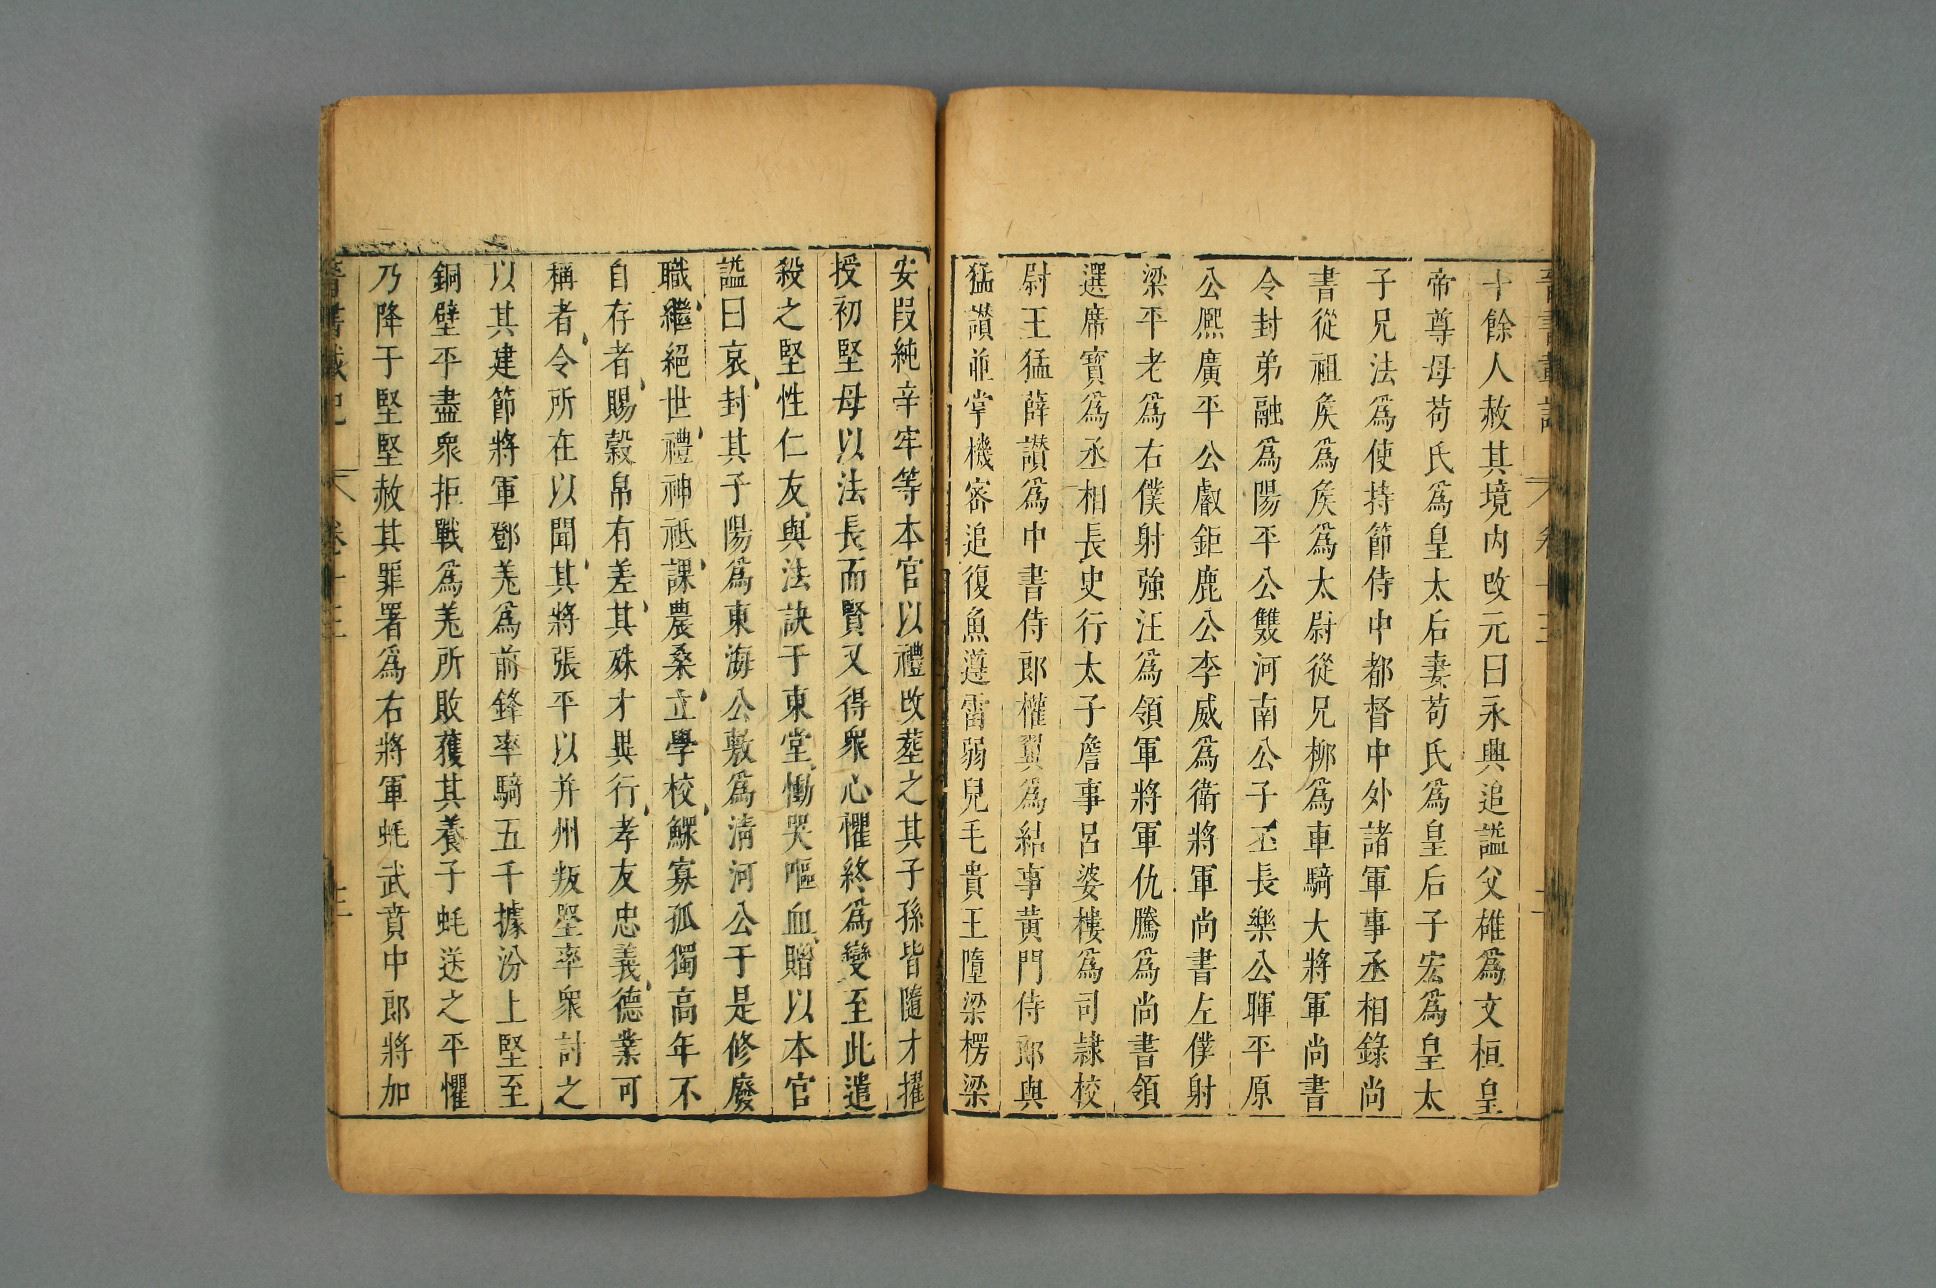 十餘人赦其境內改元曰永興追謚父雄爲文桓皇
帝尊母苟氏爲皇太后妻苟氏爲皇后子宏爲皇太
子兄法爲使持節侍中都督中外諸軍事丞相錄尚
書從祖矦爲矦爲太尉從兄柳爲車騎大將軍尚書
令封弟融爲陽平公雙河南公子丕長樂公暉平原
公熈廣平公公叡鉅鹿公李威爲衛將軍尚書左僕射
梁平老爲右僕射強汪爲領軍將軍仇騰爲尚書領
選席寶爲丞相長史行太子詹事呂婆樓爲司隷校
尉王猛薛讃爲中書侍郎權翼爲給事黃門侍郎與
猛讃並掌機密追復魚遵雷弱兒毛貴王墮梁楞梁
安段純辛牢等本官以禮改葬之其子孫皆隨才擢
授初堅母以法長而賢又得衆心懼終爲變至此遣
殺之堅性仁友與法訣于東堂慟哭嘔血贈以本官
謚曰哀封其子陽爲東海公敷爲淸河公于是修廢
職繼絕世禮神祇課農桑立學校鰥寡孤獨高年不
自存者賜穀帛有差其殊才異行孝友忠義德業可
稱者令所在以聞其將張平以并州叛堅率衆討之
以其建節將軍鄧羌爲前鋒率騎五千據汾上堅至
銅壁平盡衆拒戰爲羌所敗獲其養子蚝送之平懼
乃降于堅堅赦其罪署爲右將軍蚝武賁中郎將加
晉書載記 卷十三